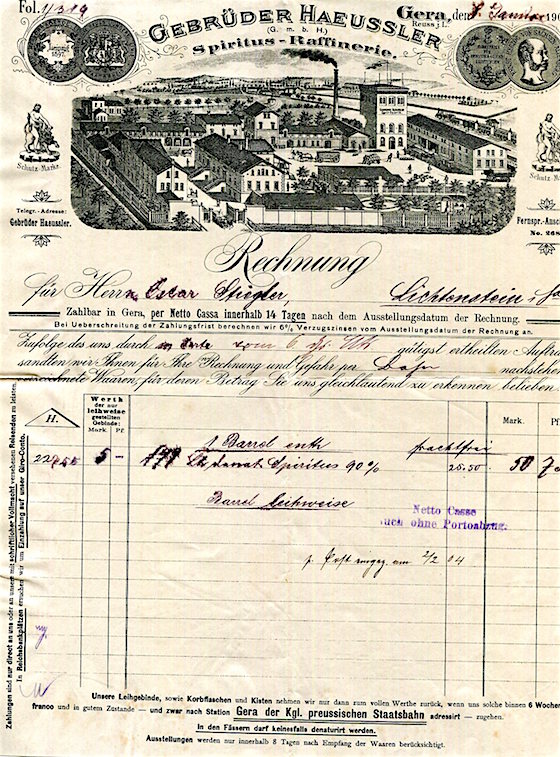 Fol. 4319
GEBRÜDER HAEUSSLER
(G. m. b. H.)
Spiritus-Raffinerie.
Gera, den 8. Januar 190
Reuss j. L.
Schutz-Marke.
Telegr.-Adresse:
Gebrüder Haeussler.
Schutz-Mark
Fernspr.-Ansc
No. 268
Rechnung
für Herrn Oscar Stiegler, Lichtenstein i/
Zahlbar in Gera, per Netto Cassa innerhalb 14 Tagen nach dem Ausstellungsdatum der Rechnung.
Bei Ueberschreitung der Zahlungsfrist berechnen wir 6% Verzugszinsen vom Ausstellungsdatum der Rechnung an.
Zufolge des uns durch Karte vom 6 gütigst ertheilten Auftra
sandten wir Ihnen für Ihre Rechnung und Gefahr per Bahn nachstehen
Waaren, für deren Betrag Sie uns gleichlautend zu erkennen belieben
H.
Werth
der nur
leihweise
gestellten
Gebinde:
Mark. Pf.
Mark. Pf
1 Barrel enth frachtfrei
5 – denat Spiritus 90% 25.50 50
Barrel leihweise
Netto Casse
auch ohne Portoabzug.
am 2/2 04
Zahlungen sind nur direct an uns oder an unsere mit schriftlicher Vollmacht versehenen Reisenden zu leisten.
In Reichsbankplätzen ersuchen wir um Einzahlung auf unser Giro-Conto.
Unsere Leihgebinde, sowie Korbflaschen und Kisten nehmen wir nur dann zum vollen Werthe zurück, wenn uns solche binnen 6 Woche
franco und in gutem Zustande — und zwar nach Station Gera der Kgl. preussischen Staatsbahn adressirt — zugehen.
In den Fässern darf keinesfalls denaturirt werden.
Ausstellungen werden nur innerhalb 8 Tagen nach Empfang der Waaren berücksichtigt.